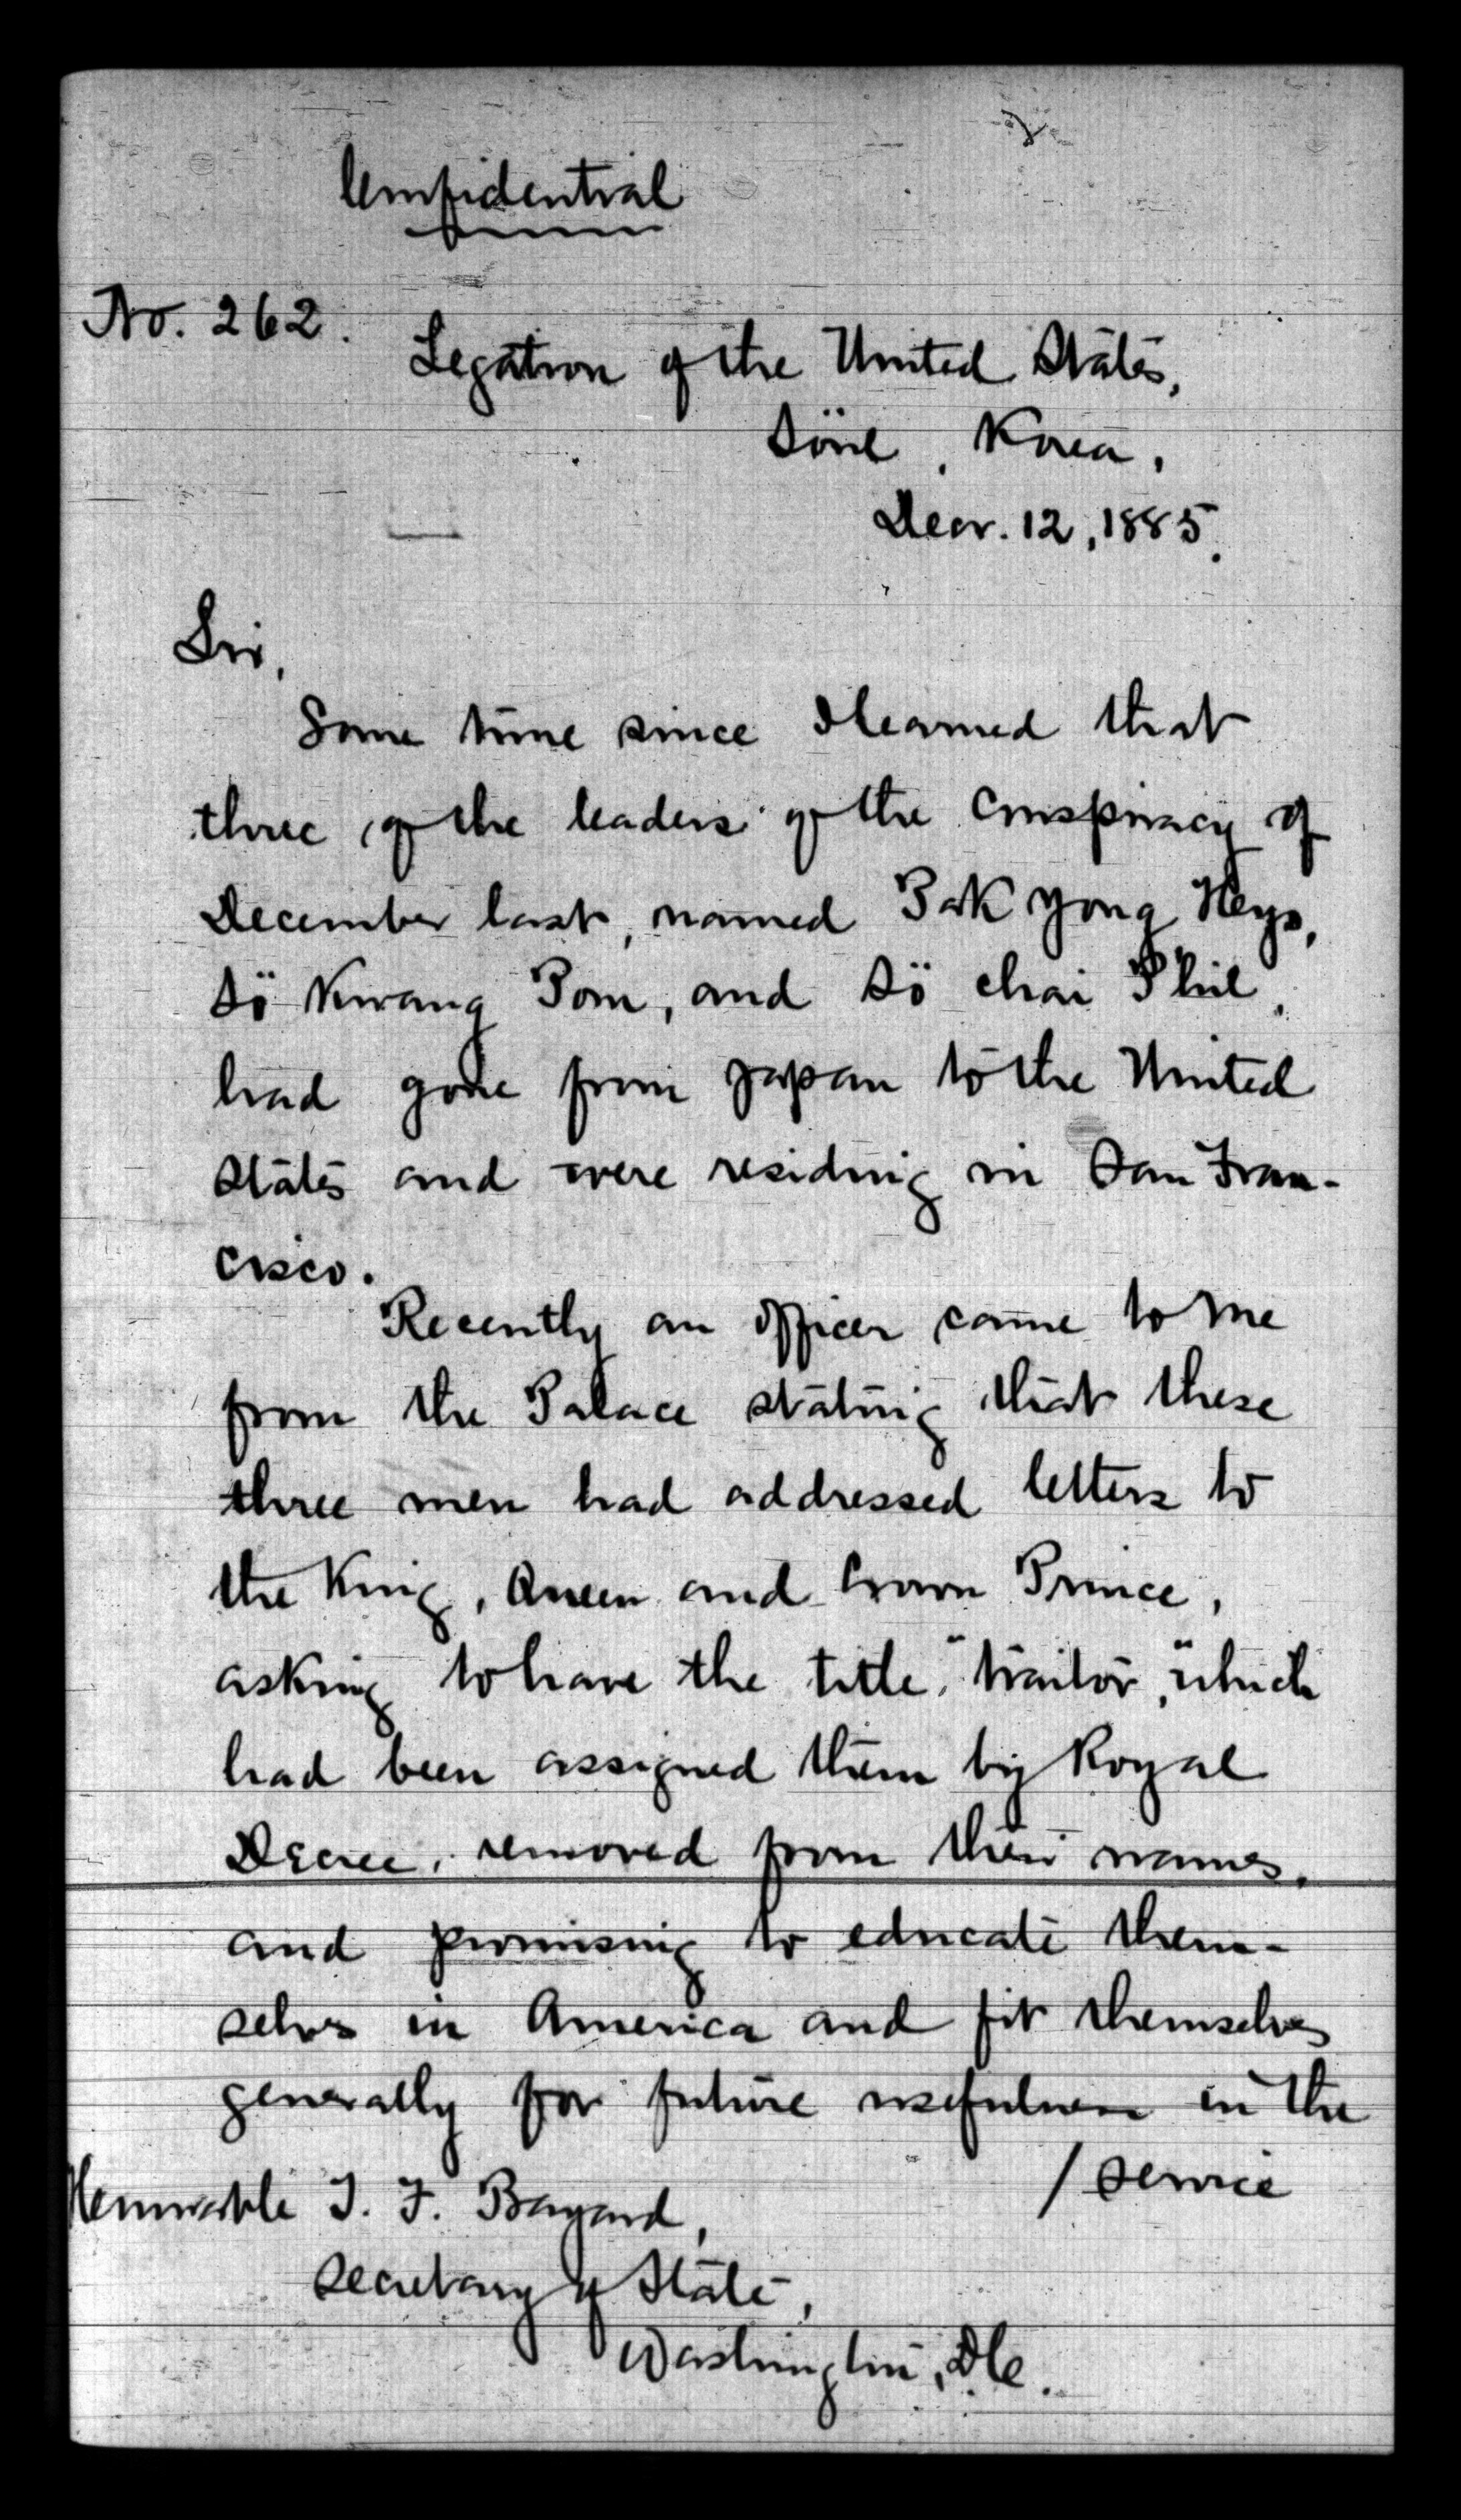 Confidential
No. 262.
Legation of the United States,
Söul, Korea,
Decr. 12, 1885.
Sir,
Some time since I learned that
three of the leaders of the Conspiracy of
December last, named Pak Yong Heyo,
Sö Kwang Pom, and Sö Chai Phil,
had gone from Japan to the United
States and were residing in San Fran-
cisco.
Recently an officer came to me
from the Palace stating that these
three men had addressed letters to
the King, Queen and Crown Prince,
asking to have the title "traitor," which
had been assigned them by Royal
Decree, removed from their names,
and promising to educate them-
selves in America and fit themselves
generally for future usefulness in the
/service
Honorable T. F. Bayard,
Secretary of State,
Washington, D.C.